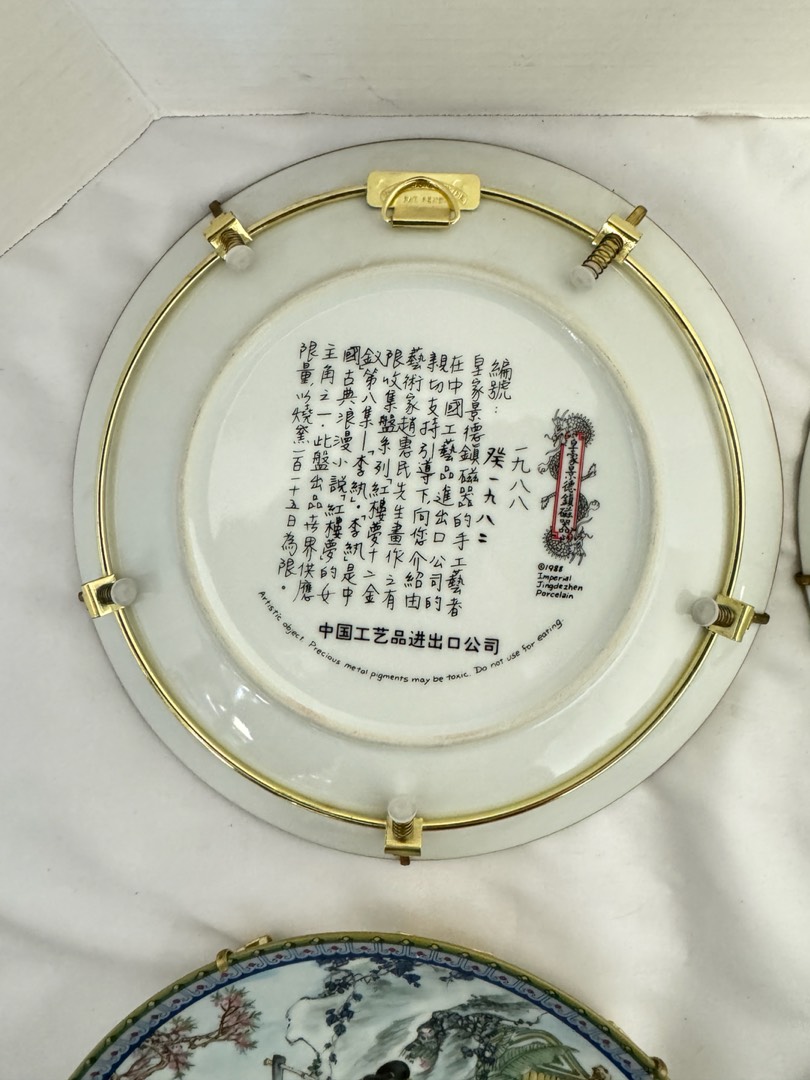 皇家景德鎮磁器
©1988
Imperial
Jingdezhen
Porcelain
一九八八
編號：
癸一九八二
皇家景德鎮磁器的手工藝者
在中國工藝品進出口公司的
親切支持引導下，向您介紹由
藝術家趙惠民先生畫作之有
限收集盤系列「紅樓夢十二金
釵」第八集—「李紈」。「李紈」是中
國古典浪漫小說「紅樓夢」的女
主角之一。此盤出品世界供應
限量，以燒窯一百一十五日為限。
中国工艺品进出口公司
Artistic object. Precious metal pigments may be toxic. Do not use for eating.